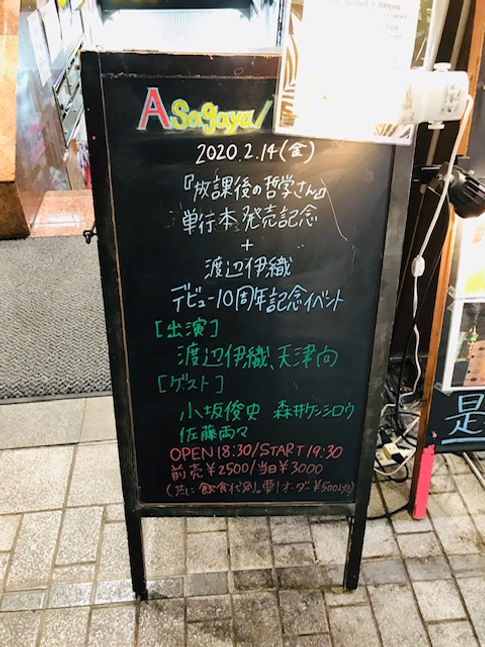 Asagaya/
2020.2.14(金)
『放課後の哲学さん』
単行本発売記念
+
渡辺伊織
デビュー10周年記念イベント
[出演]
渡辺伊織、天津向
[ゲスト]
小坂俊史 森井ケンシロウ
佐藤両々
OPEN 18:30/START 19:30
前売¥2500/当日¥3000
(共に飲食代別。要1オーダー¥500以上)
是